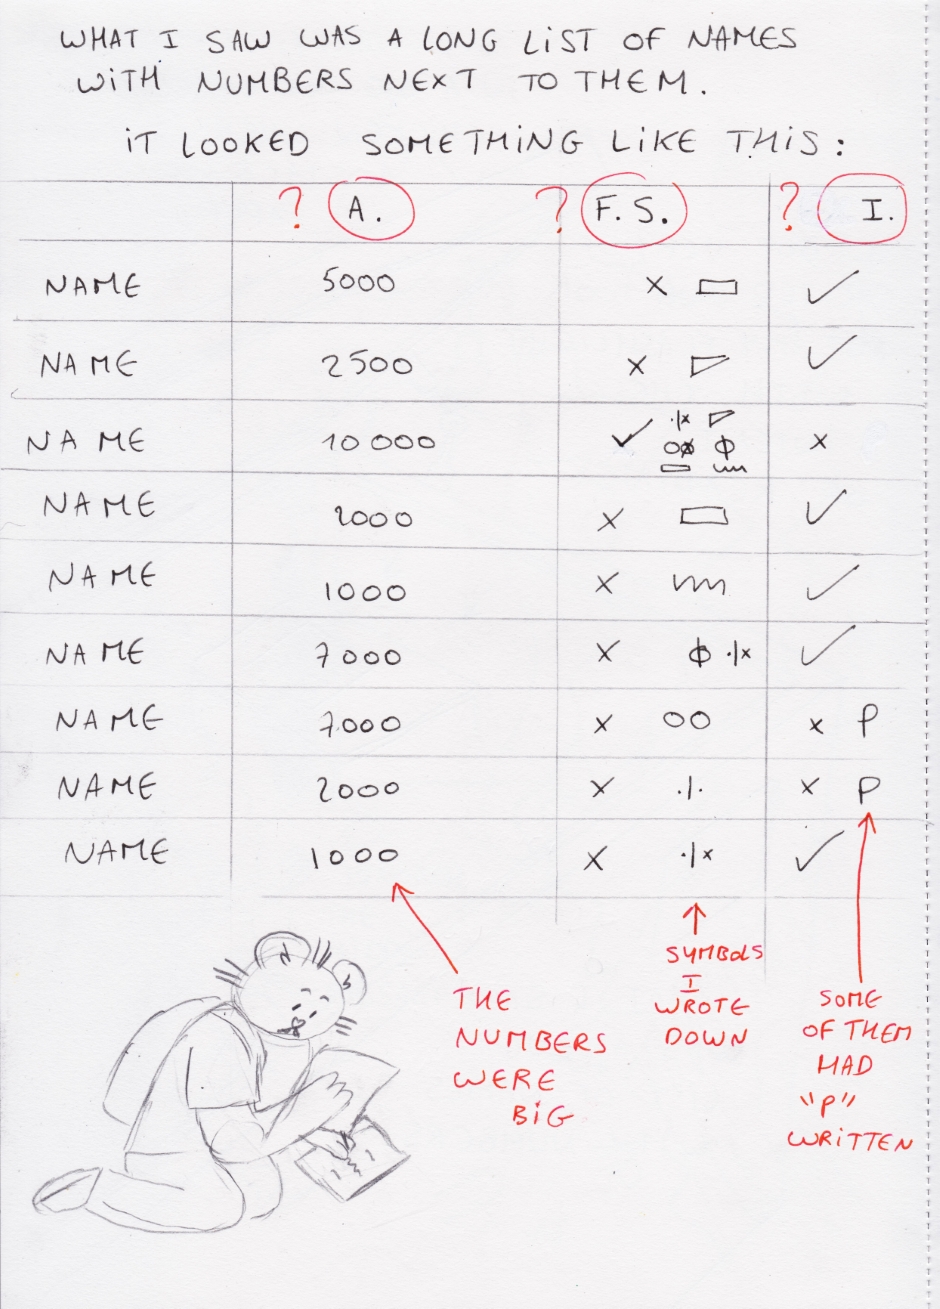 WHAT I SAW WAS A LONG LIST OF NAMES
WITH NUMBERS NEXT TO THEM.
IT LOOKED SOMETHING LIKE THIS:
? A. ? F. S. ? I.
NAME 5000 x ▭ ✓
NAME 2500 x ✓
NAME 10 000 ✓ x
NAME 2000 x ▭ ✓
NAME 1000 x ✓
NAME 7000 x ϕ ·|x ✓
NAME 7000 x OO x P
NAME 2000 x ·|· x P
NAME 1000 x ·|x ✓
THE
NUMBERS
WERE
BIG
SYMBOLS
I
WROTE
DOWN
SOME
OF THEM
HAD
"P"
WRITTEN